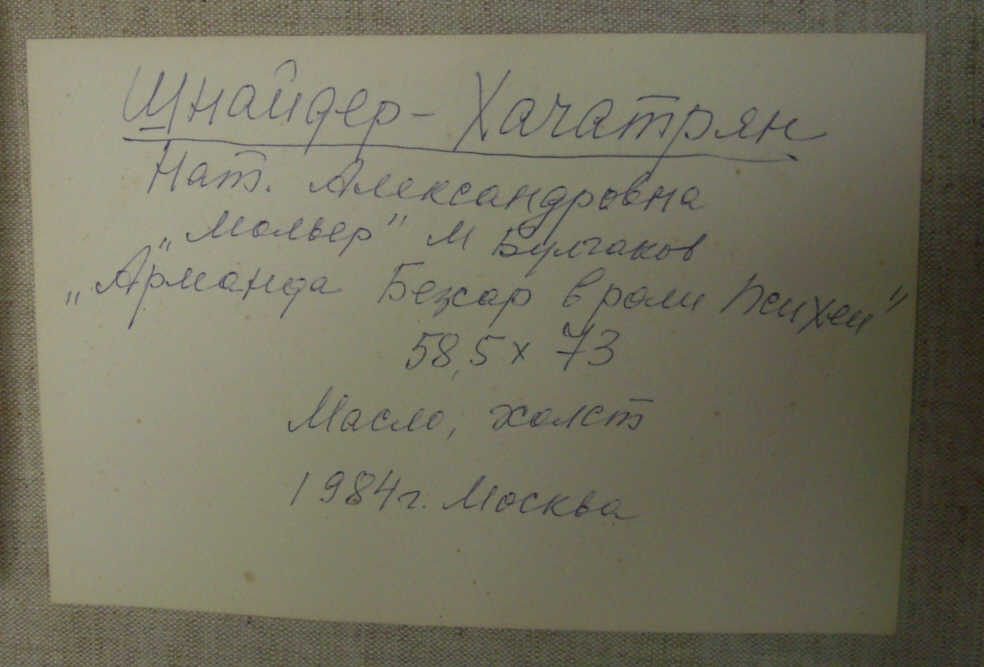 Шнайдер - Хачатрян
Нат. Александровна
„Мольер" М Булгаков
„Арманда Безсар в роли Психеи"
58,5 х 73
Масло, холст
1984 г. Москва